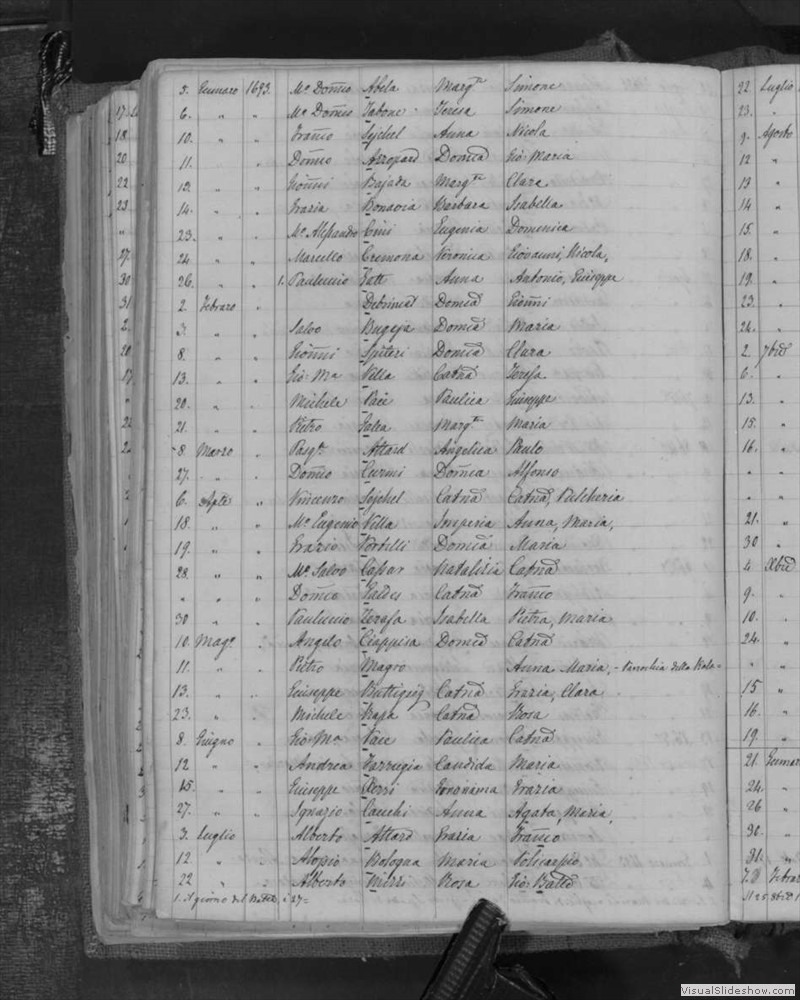 3. Gennaro 1693. Mº Dom̃co Abela Marg.ta Simone
6. " " Mº Dom̃co Fabone Teresa Simone
10. " " Fran̄co Sejchel Anna Nicola
11. " " Dom̃co Azzopard Domcã Gio Maria
12. " " Gioñni Bajada Marg.ta Clara
14. " " Grazia Bonavia Barbara Isabella
23. " " Mº Alessandro Cini Eugenia Domenica
24. " " Marcello Cremona Veronica Giovanni, Nicola,
26. " " 1. Pauluccio Zatt Anna Antonio, Giuseppe
2. Febraro " Debrincat Domcã Gioñni
3. " " Salvo Bugeja Domcã Maria
8. " " Gioñni Spiteri Domcã Clara
13. " " Gio Ma Villa Catña Teresa
20. " " Michele Pace Paulica Giuseppe
21. " " Pietro Galea Marg.ta Maria
8. Marzo " Pasq.le Attard Angelica Paulo
27. " " Dom̃co Curmi Dom̃ca Alfonso
6. Aple " Vincenzo Sejchel Catña Catña, Pulcheria
18. " " Mº Eugenio Villa Imperia Anna, Maria,
19. " " Grazio Portelli Domcã Maria
28. " " Mº Salvo Casar Natalizia Catña
" " " Dom̃co Galdes Catña Fran̄co
30 " " Pauluccio Zerafa Isabella Pietra, Maria
10. Magº " Angelo Ciappisa Domcã Catña
11. " " Pietro Magro Anna Maria, - Parrochia della
13. " " Giuseppe Buttigieg Catña Grazia, Clara
23. " " Michele Bapa Catña Rosa
8. Giugno " Gio Ma Pace Paulica Catña
12 " " Andrea Farrugia Candida Maria
15. " " Giuseppe Ferri Geronima Grazia
27. " " Ignazio Cauchi Anna Agata, Maria,
3. Luglio " Alberto Attard Grazia Fran̄co
12. " " Aloisio Bologna Maria Policarpio
22 " " Alberto Mizzi Rosa Gio Batta
1. il giorno del Batt. è 27 =
17.
18.
20.
22
23.
"
27.
30
31
2.
20
17
22. Luglio
23. "
9. Agosto
12 "
13 "
14 "
15. "
18. "
19. "
23. "
24. "
2. 7bre
6. "
13. "
15. "
16. "
" "
" "
21. "
30 "
4 Xbre
9. "
10. "
24. "
" "
15 "
16. "
19. "
21. Gennaro
24. "
26 "
30. "
31. "
Febraro
VisualSlideshow.com